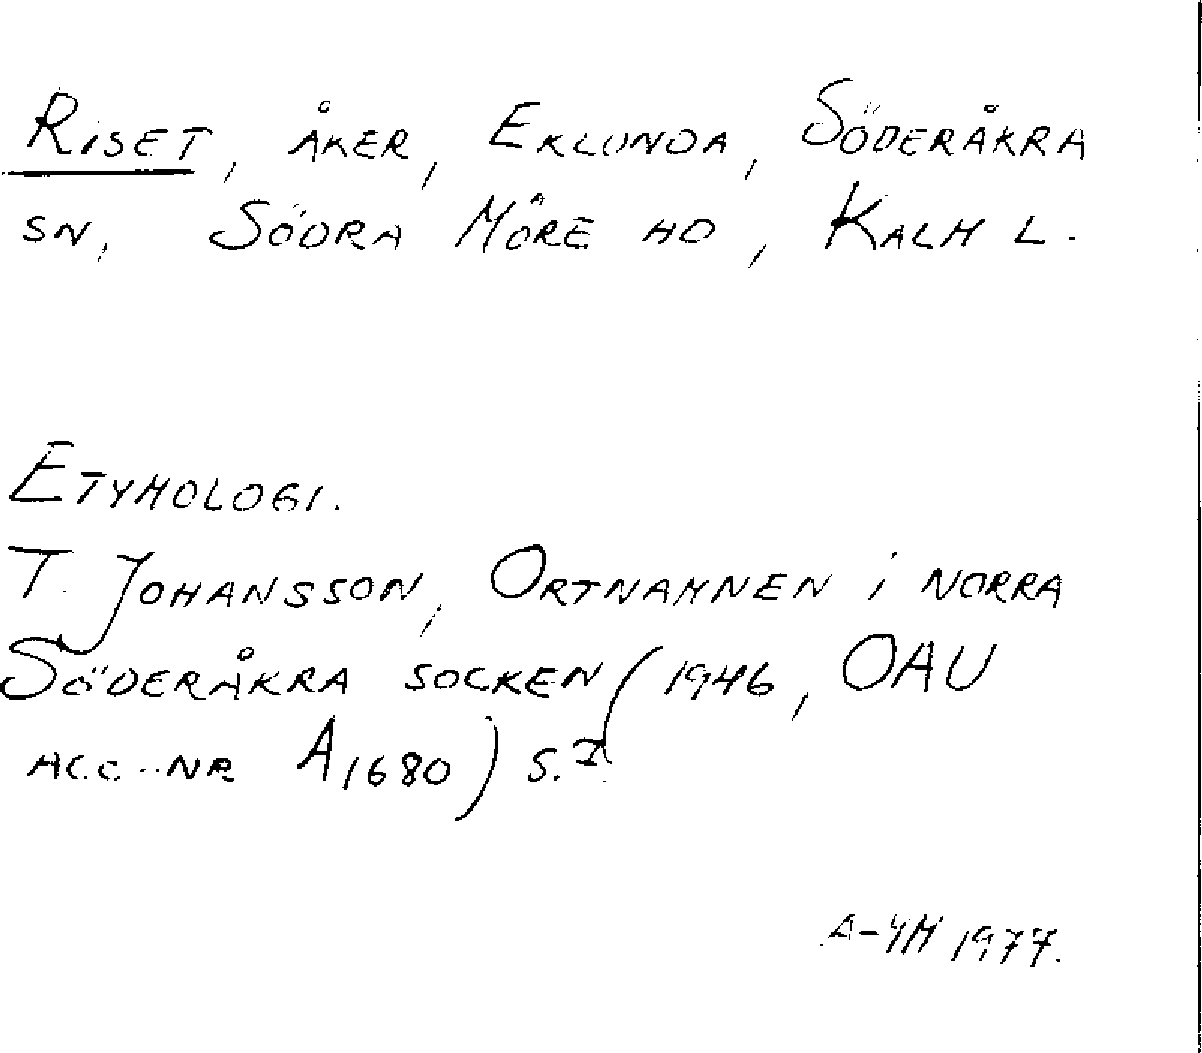 RISET, ÅKER, EKLUNDA, SÖDERÅKRA
SN, SÖDRA MÖRE HD, KALM L.
ETYMOLOGI.
T. JOHANSSON, ORTNAMNEN i NORRA
SÖDERÅKRA SOCKEN (1946, OAU
ACC.-NR A1680) S.
1977.